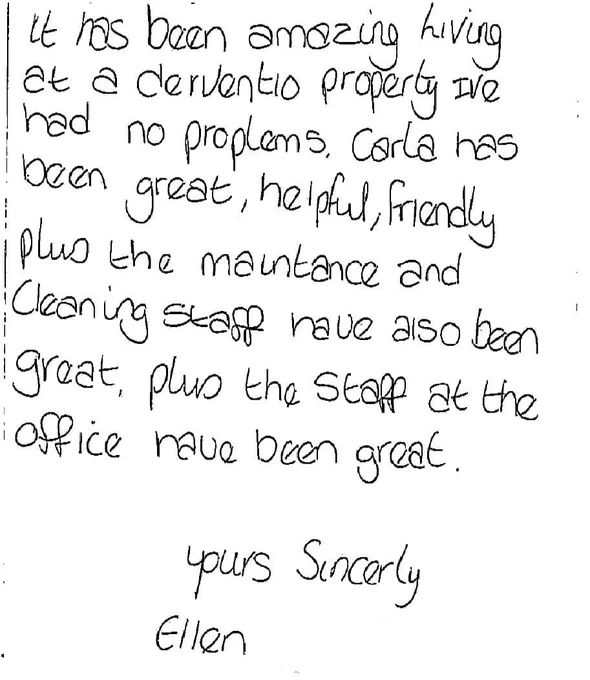 It has been amazing living
at a derventio property Ive
had no proplems. Carla has
been great, helpful, friendly
plus the maintance and
Cleaning staff have also been
great, plus the staff at the
office have been great.
yours Sincerly
Ellen